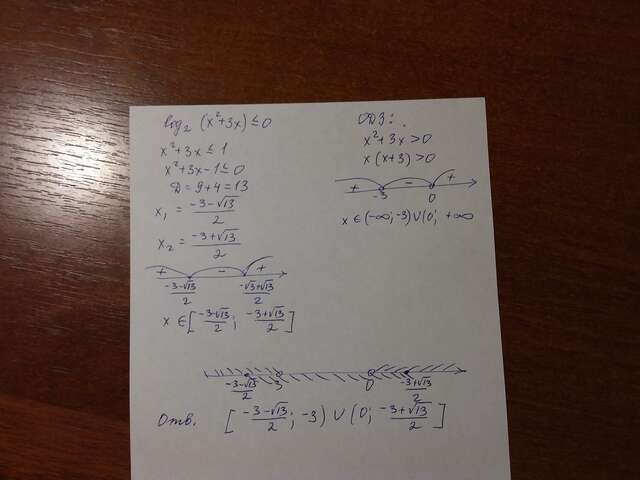 log₂ (x²+3x) ≤ 0
x²+3x ≤ 1
x²+3x-1 ≤ 0
D = 9+4 = 13
x₁ = (-3-√13)/2
x₂ = (-3+√13)/2
+ - +
(-3-√13)/2 (-√3+√13)/2
x ∈ [(-3-√13)/2; (-3+√13)/2]
ОДЗ:
x²+3x > 0
x(x+3) > 0
+ - +
-3 0
x ∈ (-∞; -3) ∪ (0; +∞
(-3-√13)/2 -3 0 (-3+√13)/2
Отв. [(-3-√13)/2; -3) ∪ (0; (-3+√13)/2]